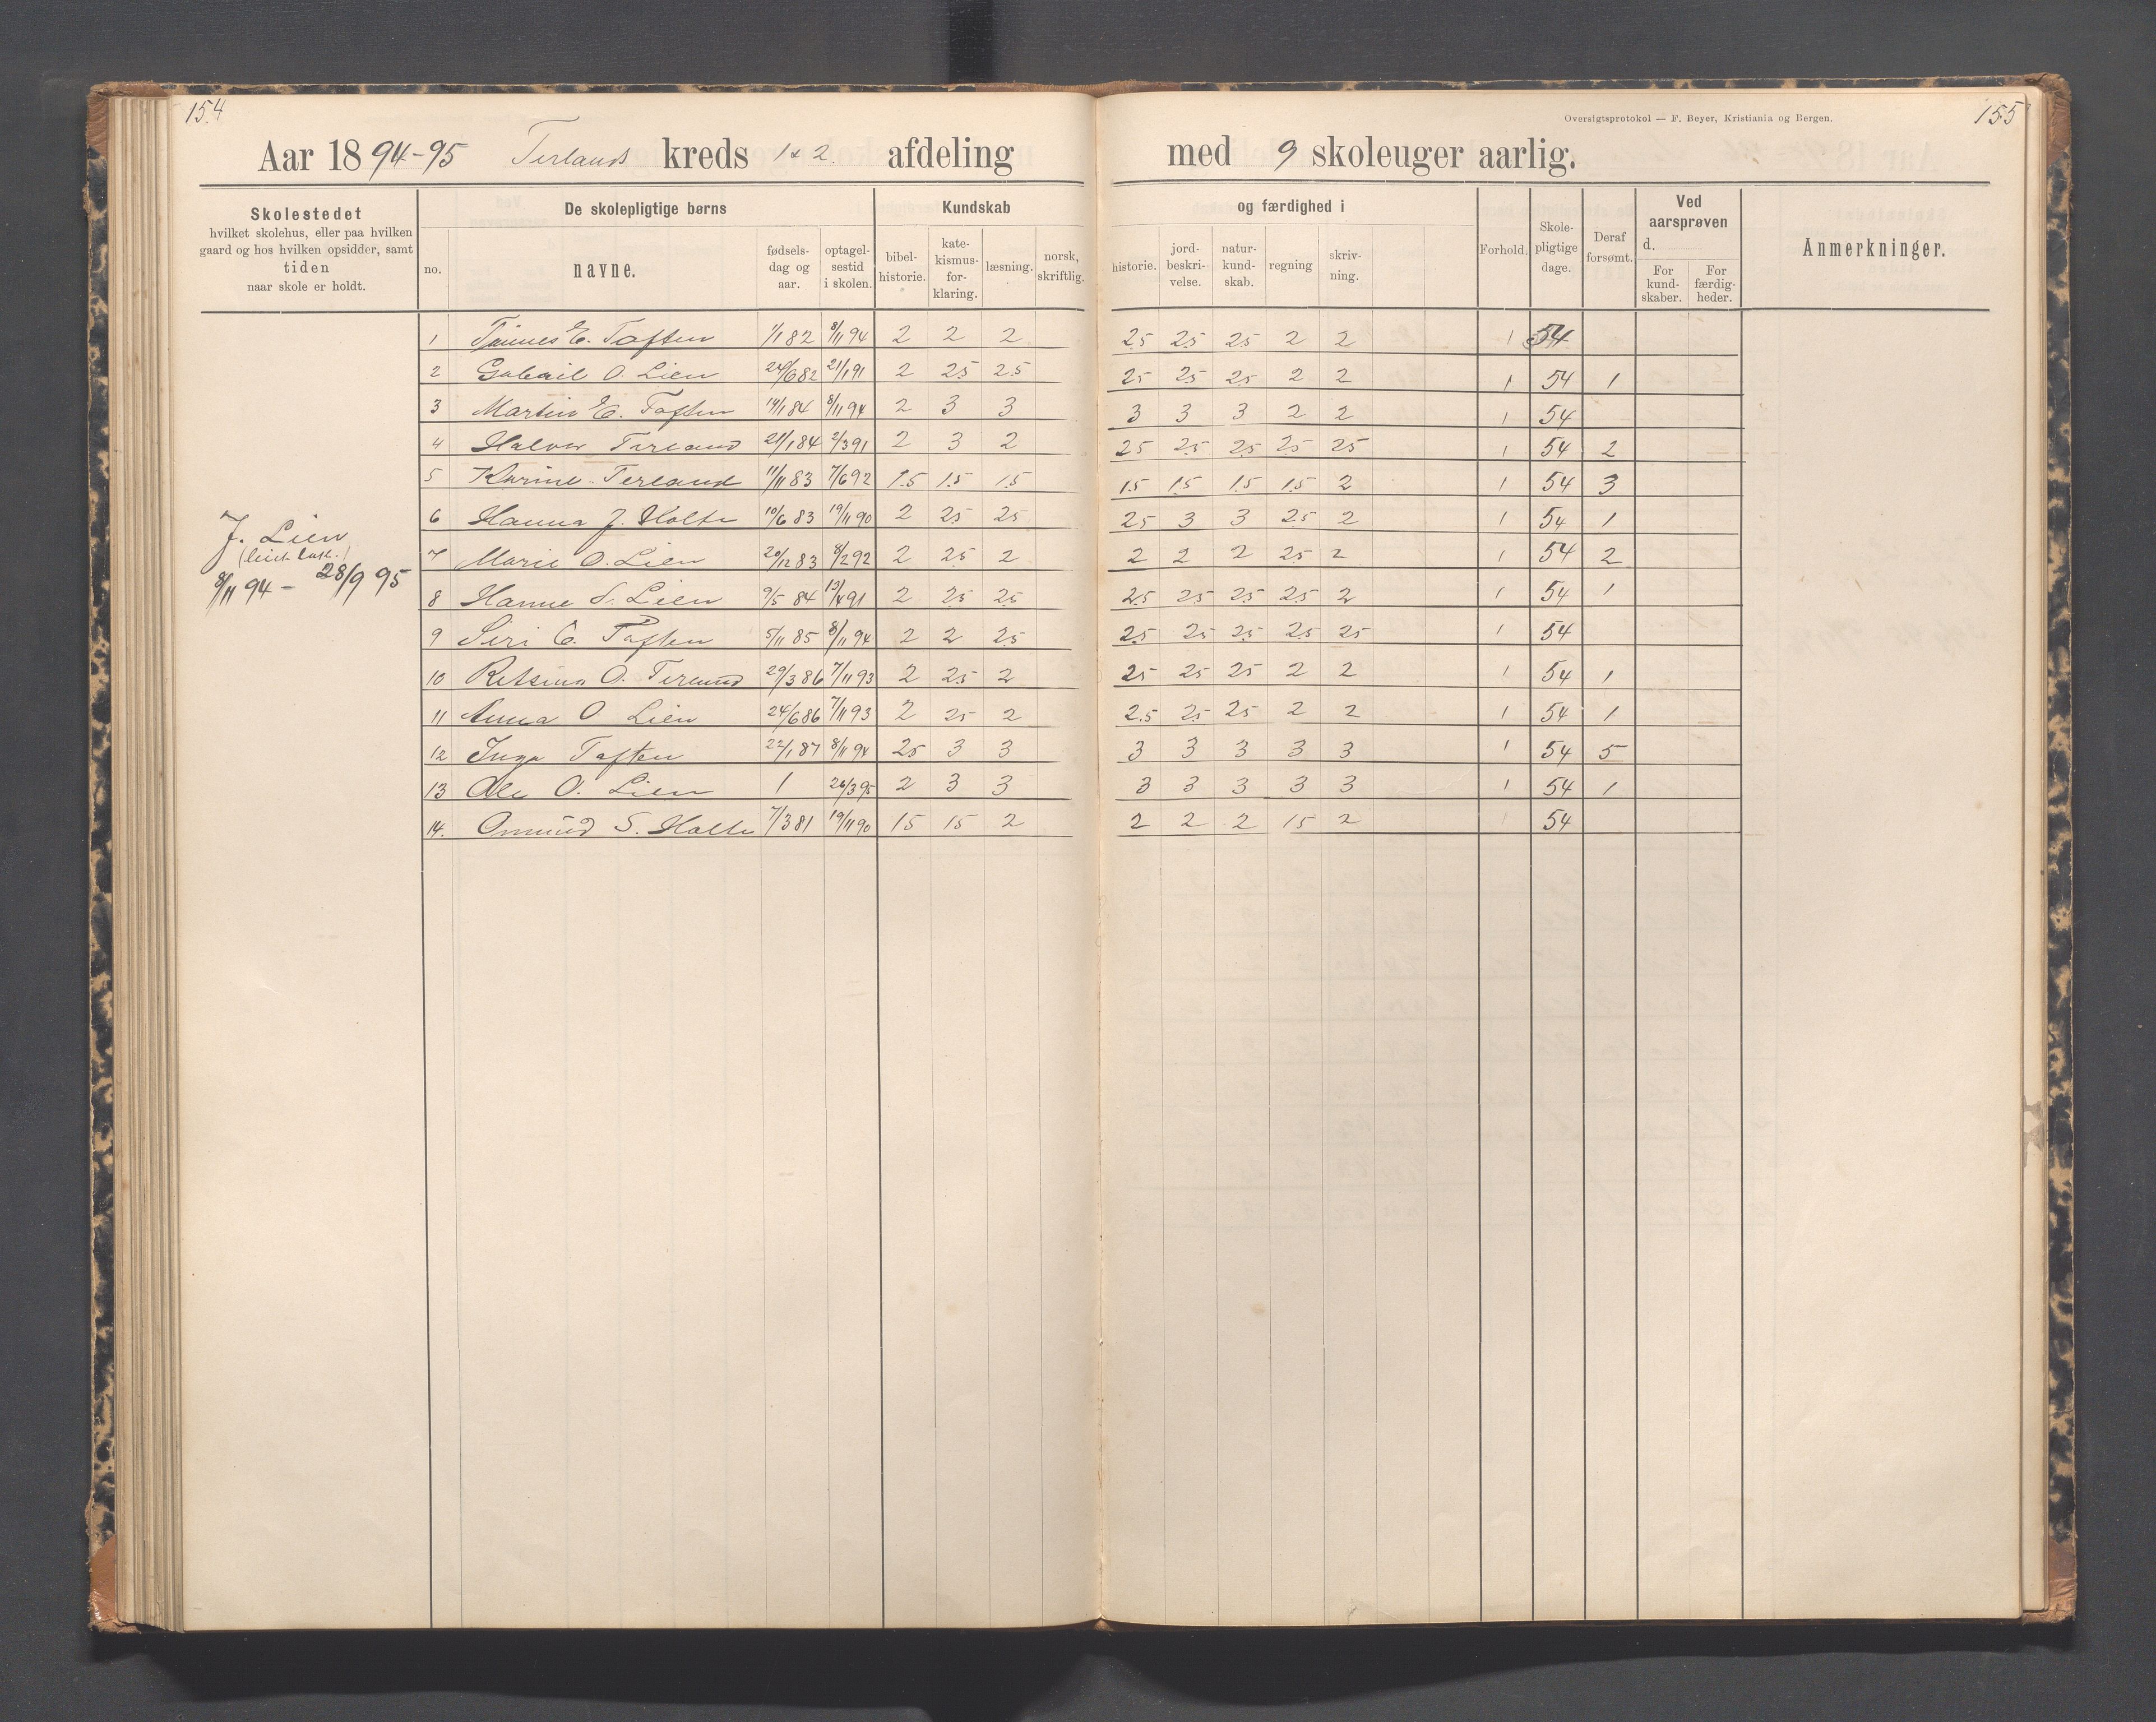 154
155
Oversigtsprotokol — F. Beyer, Kristiania og Bergen.
Aar 1894-95 Terlands kreds 1 & 2. afdeling med 9 skoleuger aarlig.
Skolestedet
hvilket skolehus, eller paa hvilken
gaard og hos hvilken opsidder, samt
tiden
naar skole er holdt.
De skolepligtige børns
no.
navne.
fødsels-
dag og
aar.
optagel-
sestid
i skolen.
Kundskab
bibel-
historie.
kate-
kismus-
for-
klaring.
læsning.
norsk,
skriftlig.
og færdighed i
historie.
jord-
beskri-
velse.
natur-
kund-
skab.
regning
skriv-
ning.
Forhold.
Skole-
pligtige
dage.
Deraf
forsømt.
Ved
aarsprøven
d.
For
kund-
skaber.
For
færdig-
heder.
Anmerkninger.
J. Lien
8/11 94 - 28/9 95
1 Tønnes E. Toften 1/1 82 8/11 94 2 2 2 2.5 2.5 2.5 2 2 1 54
2 Gabriel O. Lien 24/6 82 21/1 91 2 2.5 2.5 2.5 2.5 2.5 2 2 1 54 1
3 Martin E. Toften 14/1 84 8/11 94 2 3 3 3 3 3 2 2 1 54
4 Halvor Terland 21/1 84 2/3 91 2 3 2 25 25 25 25 25 1 54 2
5 Karine Terland 11/11 83 7/6 92 1.5 1.5 1.5 1.5 1.5 1.5 1.5 2 1 54 3
6 Hanna J. Holte 10/6 83 19/11 90 2 25 25 25 3 3 25 2 1 54 1
7 Marie O. Lien 20/12 83 8/2 92 2 25 2 2 2 2 25 2 1 54 2
8 Hanne S. Lien 9/5 84 13/4 91 2 25 25 25 25 25 25 2 1 54 1
9 Siri E. Toften 5/11 85 8/11 94 2 2 25 25 25 25 25 25 1 54
10 O. Terland 29/3 86 7/11 93 2 25 2 25 25 25 2 2 1 54 1
11 Anna O. Lien 24/6 86 7/11 93 2 25 2 2.5 25 25 2 2 1 54 1
12 Inga Toften 22/1 87 8/11 94 25 3 3 3 3 3 3 3 1 54 5
13 Ole O. Lien 1 26/3 95 2 3 3 3 3 3 3 3 1 54 1
14. Omund S. Holte 7/3 81 19/11 90 15 15 2 2 2 2 15 2 54